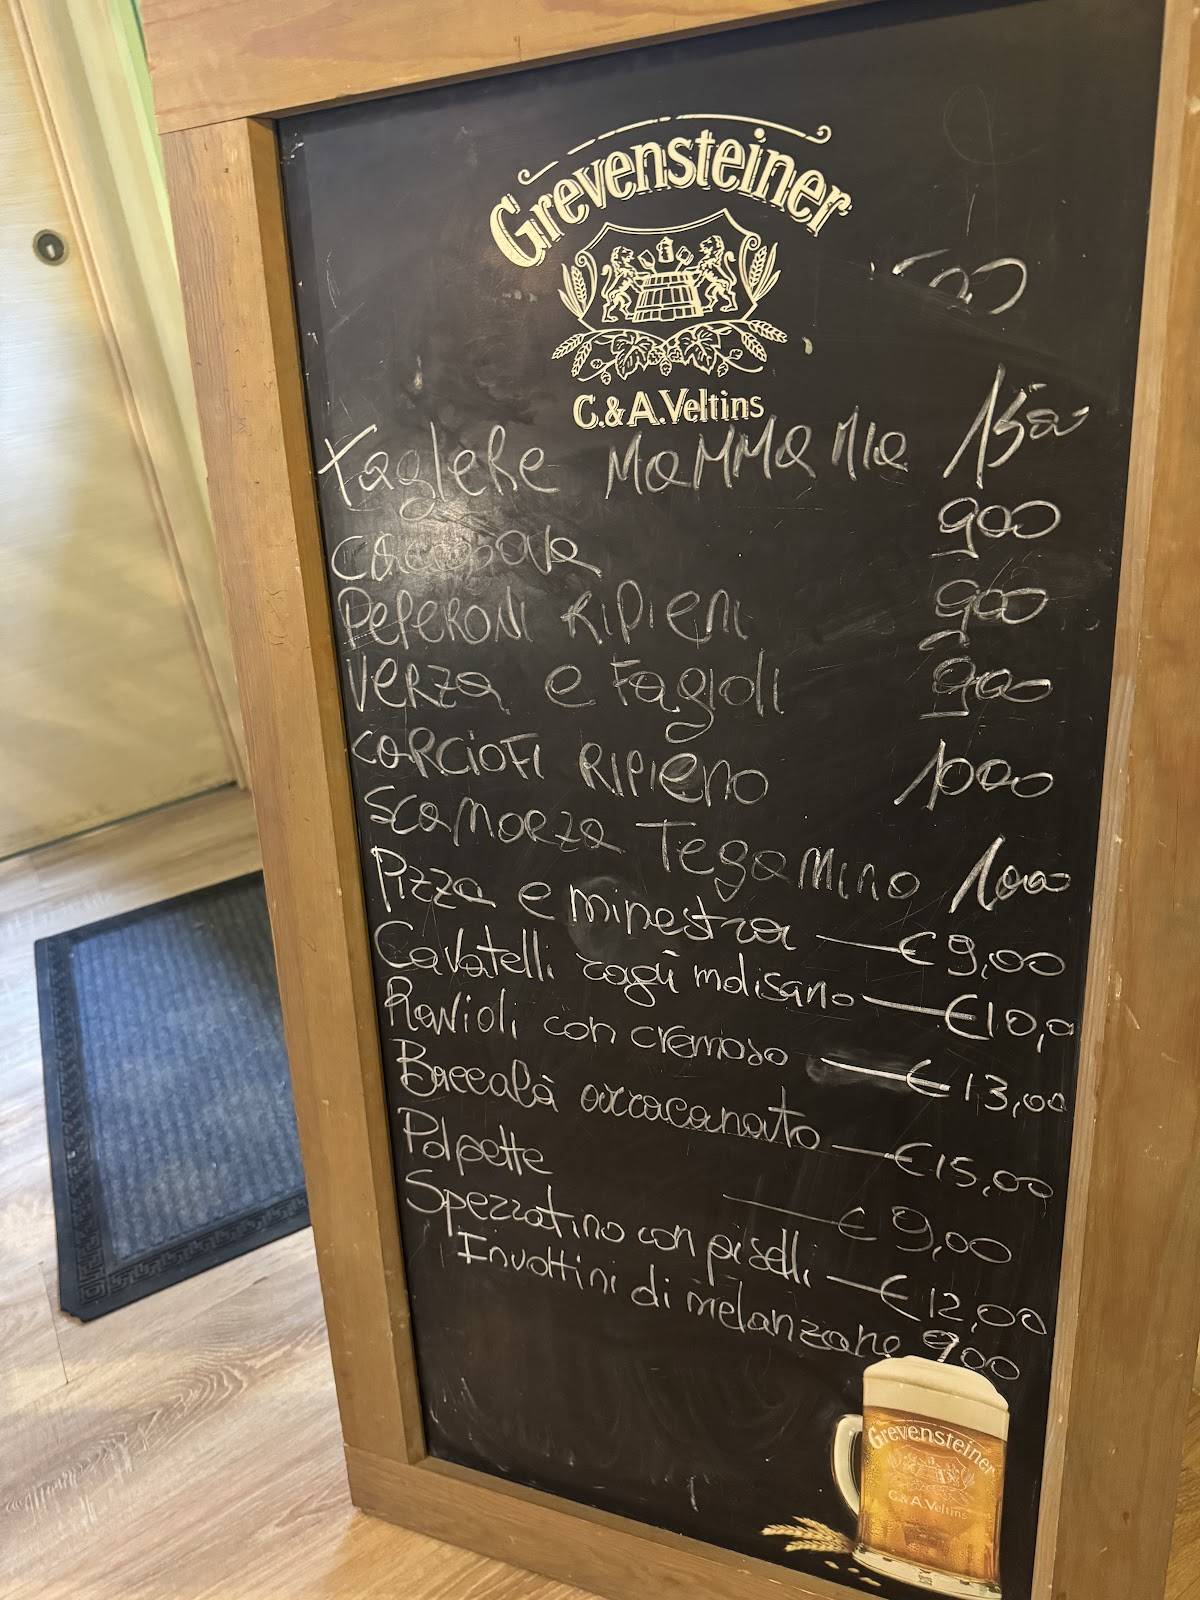 Grevensteiner
C.&A.Veltins
Tagliere Mamma Mia 1500
900
Peperoni Ripieni 900
Verza e Fagioli 900
Carciofi Ripieno 1000
Scamorza Tegamino 1000
Pizza e minestra — €9,00
Cavatelli ragù molisano — €10,0
Ravioli con cremoso — €13,00
Baccalà arracanato — €15,00
Polpette — €9,00
Spezzatino con piselli — €12,00
Involtini di melanzane 900
Grevensteiner
C.&A.Veltins